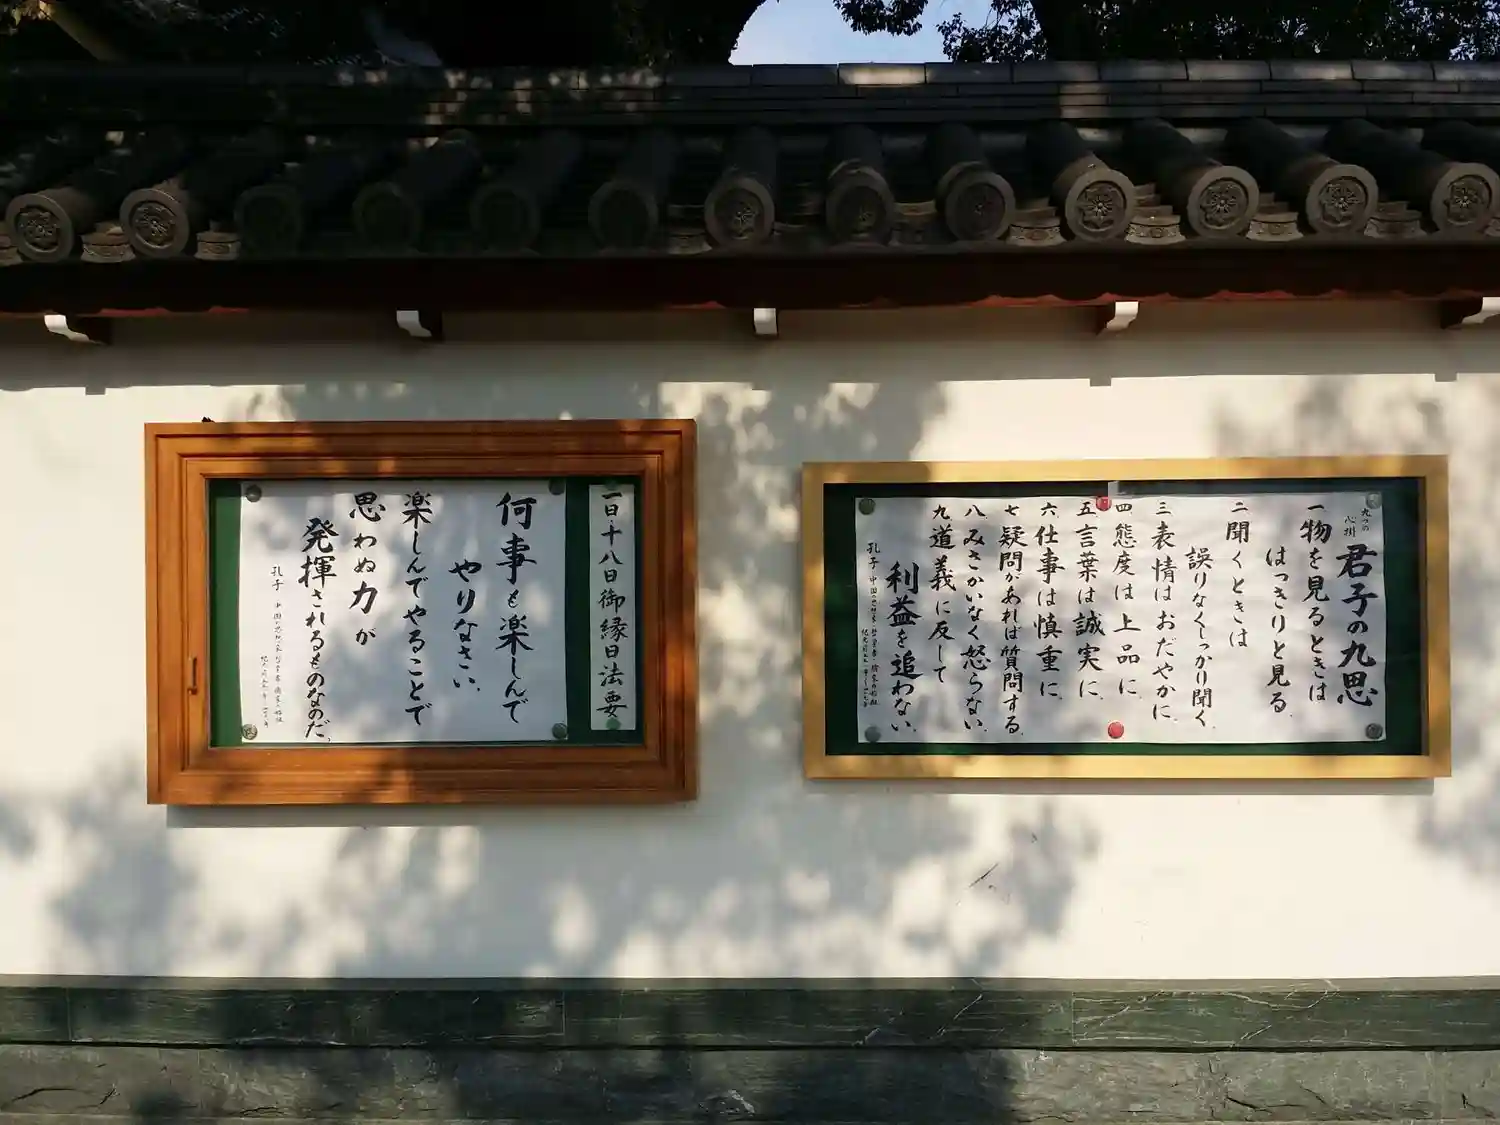 一日十八日御縁日法要
何事も楽しんで
やりなさい。
楽しんでやることで
思わぬ力が
発揮されるものなのだ。
孔子 中国の思想家・哲学者・儒家の始祖
九つの
心掛
君子の九思
一物を見るときは
はっきりと見る。
二聞くときは
誤りなくしっかり聞く。
三表情はおだやかに。
四態度は上品に。
五言葉は誠実に。
六仕事は慎重に。
七疑問があれば質問する。
八みさかいなく怒らない。
九道義に反して
利益を追わない。
孔子 中国の思想家・哲学者・儒家の始祖